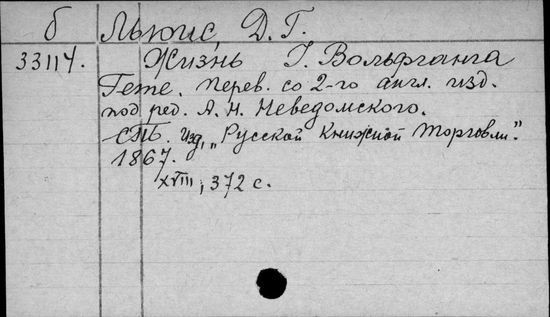 б Льюис, Д. Г.
33114. Жизнь I. Вольфганга
Гете. Перев. со 2-го англ. изд.
под ред. А. Н. Неведомского.
СПБ. Изд. „Русской Книжной Торговли".
1867.
XVIII, 372 с.